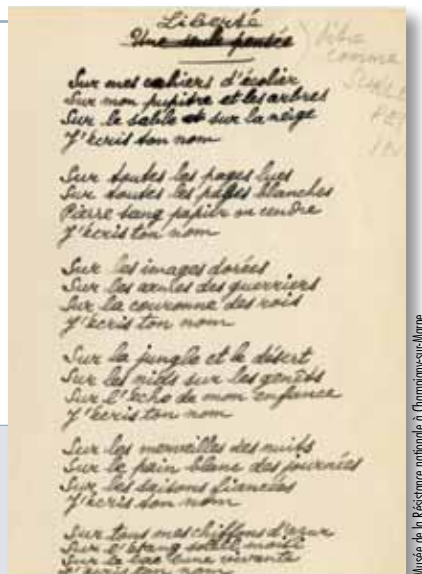 Liberté
Une seule pensée
Sur mes cahiers d'écolier
Sur mon pupitre et les arbres
Sur le sable et sur la neige
J'écris ton nom
Sur toutes les pages lues
Sur toutes les pages blanches
Pierre sang papier ou cendre
J'écris ton nom
Sur les images dorées
Sur les armes des guerriers
Sur la couronne des rois
J'écris ton nom
Sur la jungle et le désert
Sur les nids sur les genêts
Sur l'écho de mon enfance
J'écris ton nom
Sur les merveilles des nuits
Sur le pain blanc des journées
Sur les saisons fiancées
J'écris ton nom
Sur tous mes chiffons d'azur
Sur l'étang soleil moisi
Sur le lac lune vivante
J'écris ton nom
titre
comme
Musée de la Résistance nationale à Champigny-sur-Marne